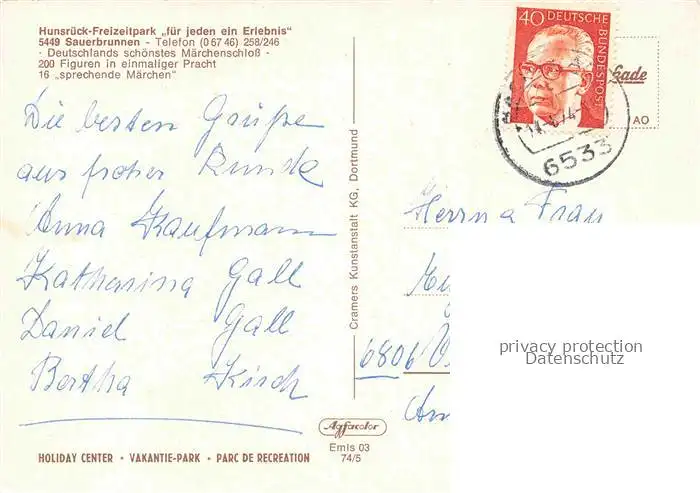 Hunsrück-Freizeitpark „für jeden ein Erlebnis"
5449 Sauerbrunnen - Telefon (0 67 46) 258/246
- Deutschlands schönstes Märchenschloß -
200 Figuren in einmaliger Pracht
16 „sprechende Märchen"
Die besten Grüße
aus froher Runde
Anna Kaufmann
Katharina Gall
Daniel Gall
Bertha Kisch
HOLIDAY CENTER • VAKANTIE-PARK • PARC DE RECREATION
Cramers Kunstanstalt KG, Dortmund
Agfacolor
Emls 03
74/5
40 DEUTSCHE
BUNDESPOST
6533
AO
Herrn a Frau
6806
privacy protection
Datenschutz